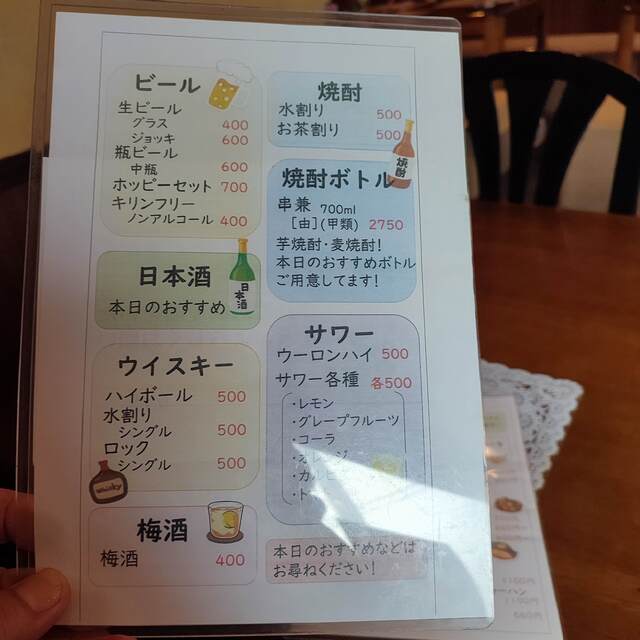 ビール
生ビール
グラス 400
ジョッキ 600
瓶ビール
中瓶 600
ホッピーセット 700
キリンフリー
ノンアルコール 400
日本酒
日本酒
本日のおすすめ
ウイスキー
ハイボール 500
水割り
シングル 500
ロック
シングル 500
梅酒
梅酒 400
焼酎
水割り 500
お茶割り 500
焼酎
焼酎ボトル
串兼 700ml
[由](甲類) 2750
芋焼酎・麦焼酎!
本日のおすすめボトル
ご用意してます!
サワー
ウーロンハイ 500
サワー各種 各500
・レモン
・グレープフルーツ
・コーラ
本日のおすすめなどは
お尋ねください!